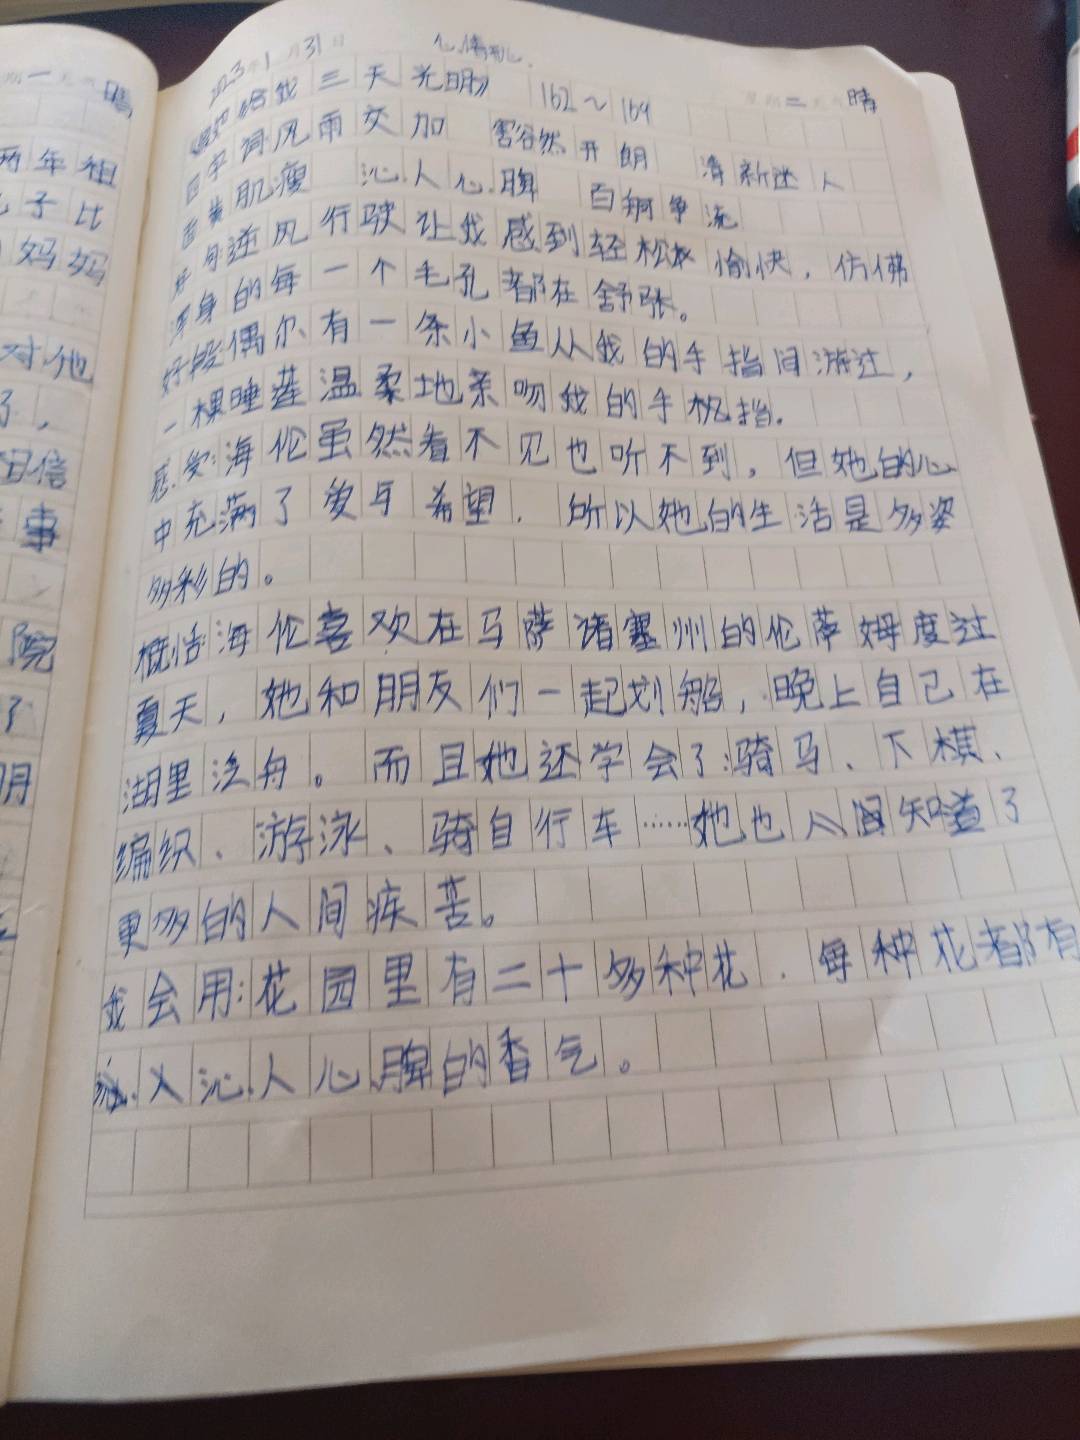 一 晴
两年祖
子比
妈妈
对他
了，
相信
事
院
了
明
2023年1月31日 心情 星期二天气晴
《假如给我三天光明》 162～169
四字词风雨交加 豁然开朗 清新迷人
面黄肌瘦 沁人心脾 百舸争流
好句逆风行驶让我感到轻松 愉快，仿佛
浑身的每一个毛孔都在舒张。
好段:偶尔有一条小鱼从我的手指间游过，
一棵睡莲温柔地亲吻我的手指.
感受:海伦虽然看不见也听不到，但她的心
中充满了爱与希望．所以她的生活是多姿
多彩的。
概括海伦喜欢在马萨诸塞州的伦萨姆度过
夏天，她和朋友们一起划船，晚上自己在
湖里泛舟。而且她还学会了:骑马、下棋、
编织、游泳、骑自行车……她也 知道了
更多的人间疾苦。
我会用:花园里有二十多种花．每种花都有
沁人心脾的香气。